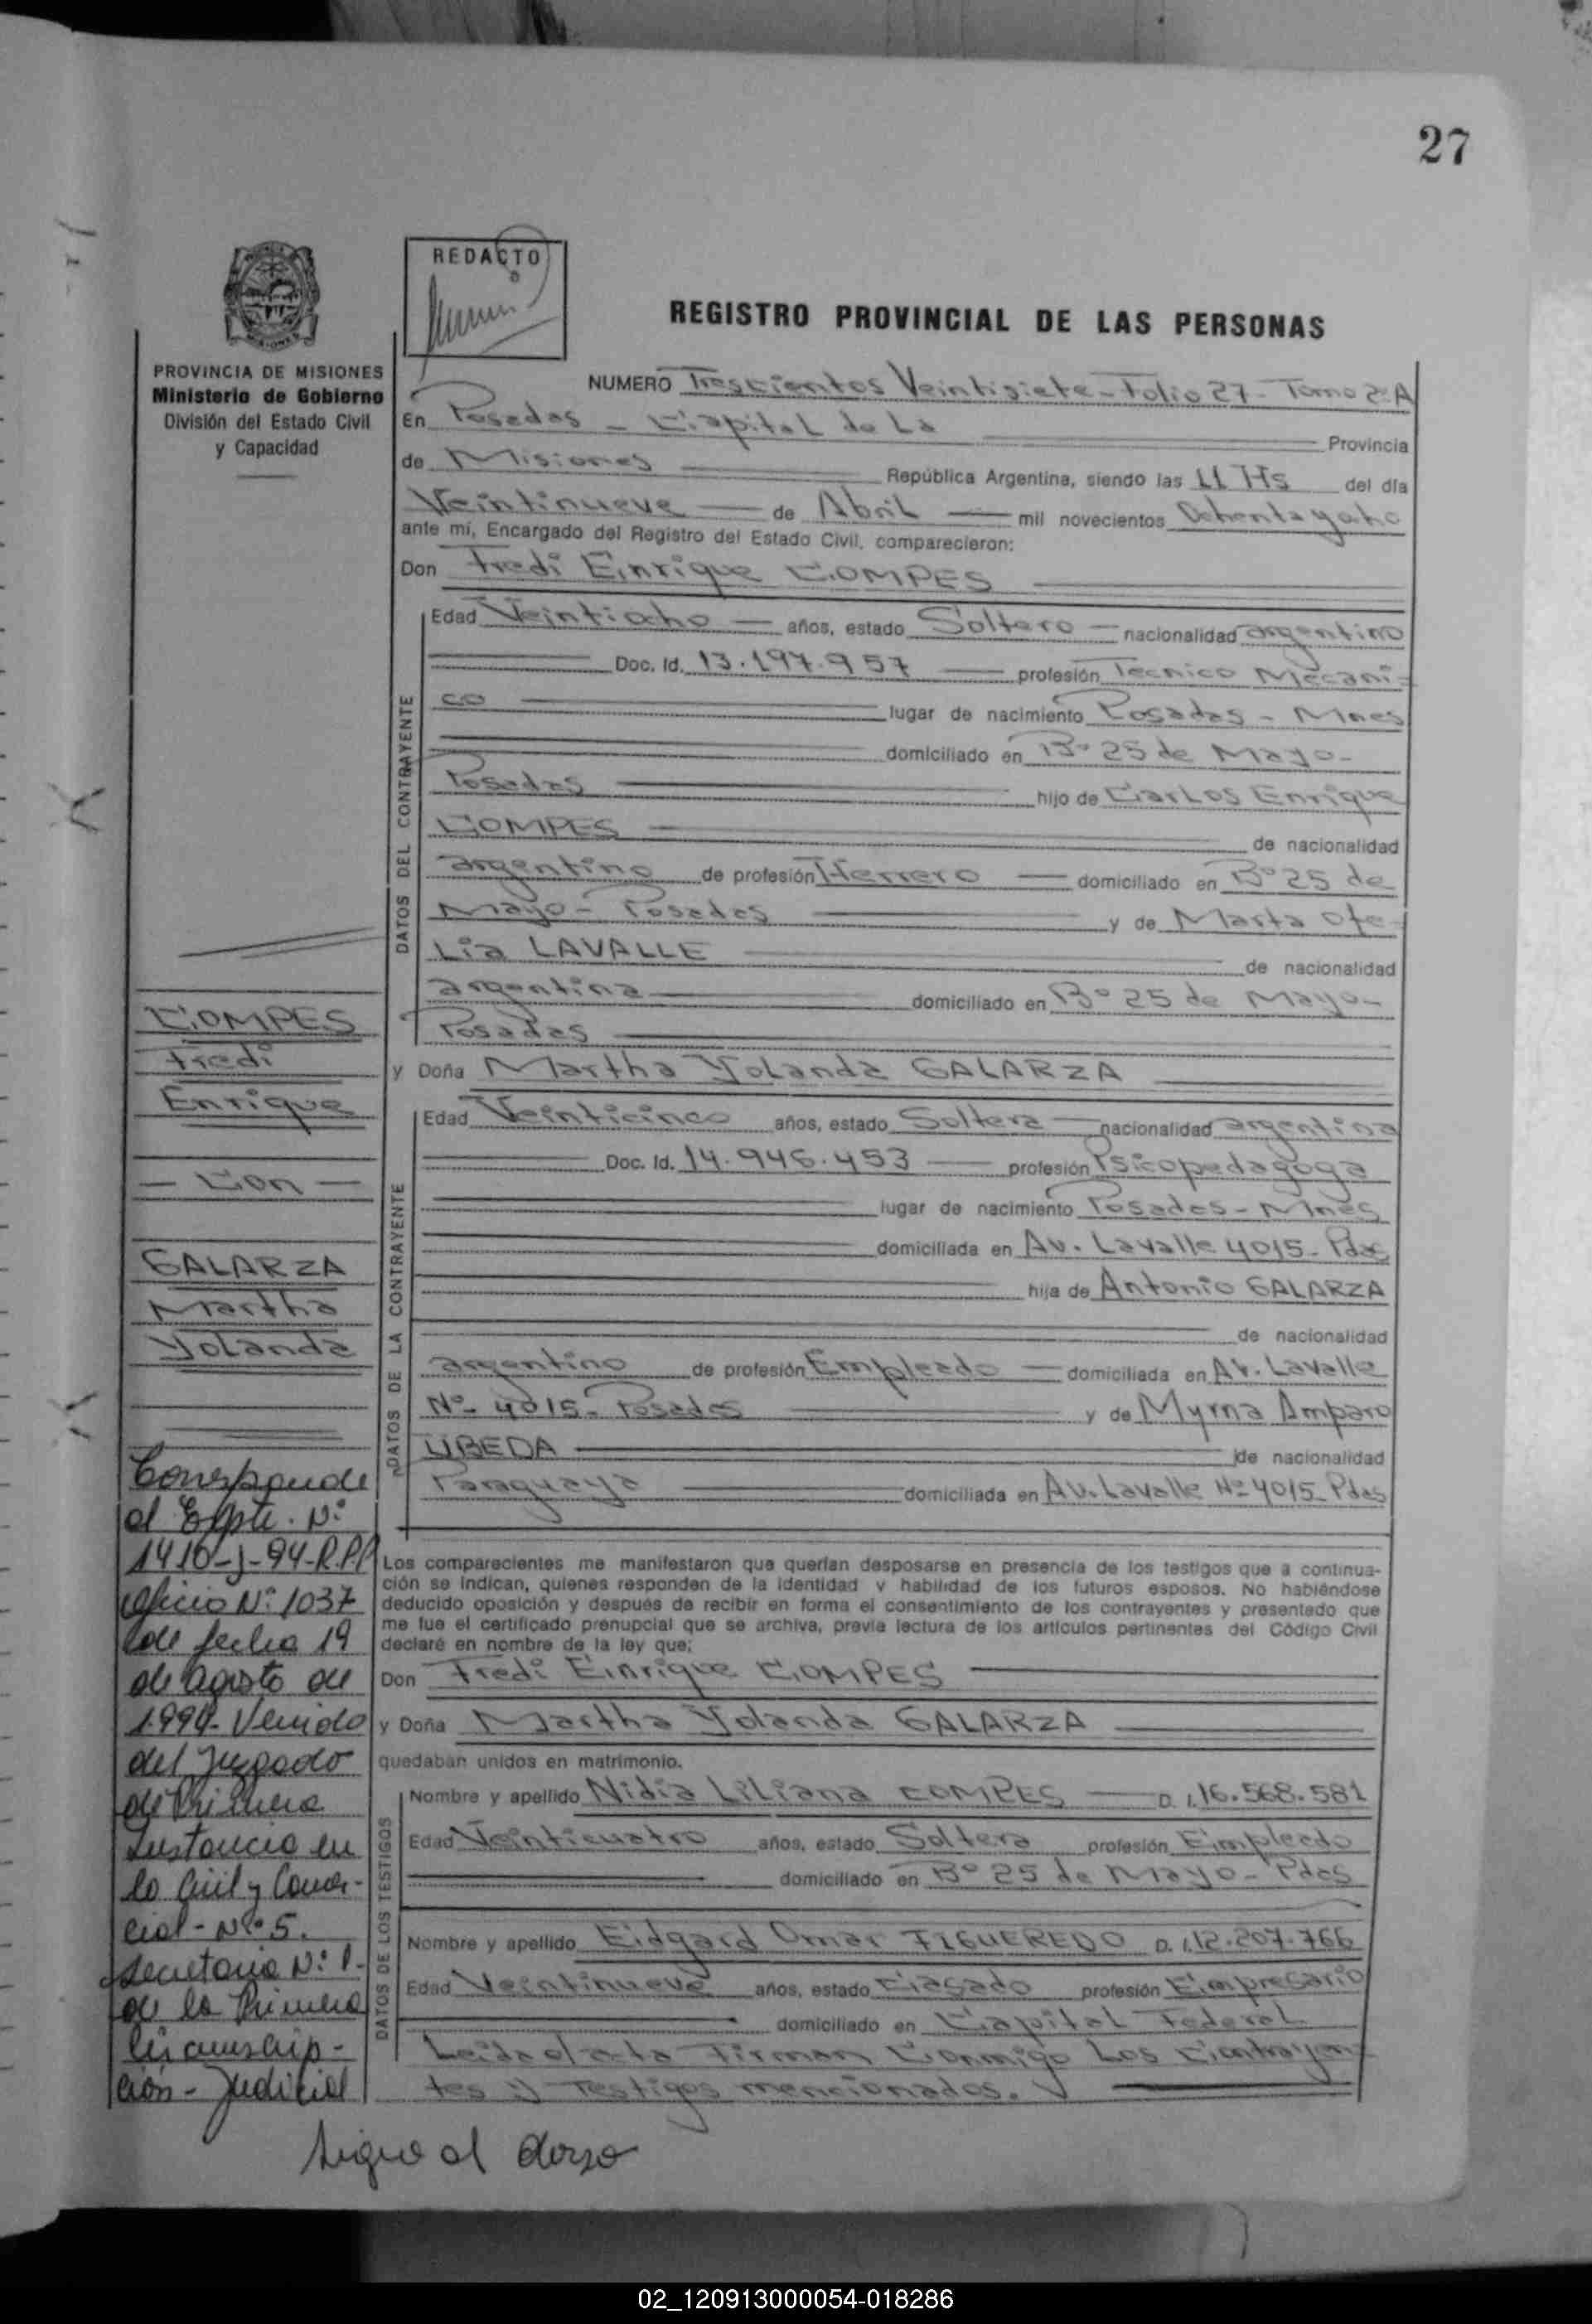 27
REDACTO
REGISTRO PROVINCIAL DE LAS PERSONAS
PROVINCIA DE MISIONES
Ministerio de Gobierno
División del Estado Civil
y Capacidad
NUMERO Trescientos Veintisiete - Folio 27 - Tomo 2º A
En Posadas - Capital de La Provincia
de Misiones República Argentina, siendo las 11 Hs del día
Veintinueve de Abril mil novecientos Ochenta y ocho
ante mí, Encargado del Registro del Estado Civil, comparecieron:
Don Fredi Enrique COMPES
DATOS DEL CONTRAYENTE
Edad Veintiocho años, estado Soltero nacionalidad argentino
Doc. Id. 13.197.957 profesión Tecnico Mecani-
co lugar de nacimiento Posadas - Mnes
domiciliado en Bº 25 de Mayo -
Posadas hijo de Carlos Enrique
COMPES de nacionalidad
argentino de profesión Herrero domiciliado en Bº 25 de
Mayo - Posadas y de Marta Ofe-
Lia LAVALLE de nacionalidad
argentina domiciliado en Bº 25 de Mayo -
Posadas
y Doña Martha Yolanda GALARZA
DATOS DE LA CONTRAYENTE
Edad Veinticinco años, estado Soltera nacionalidad argentina
Doc. Id. 14.946.453 profesión Psicopedagoga
lugar de nacimiento Posadas - Mnes
domiciliada en Av. Lavalle 4015 - Pdas
hija de Antonio GALARZA
de nacionalidad
argentino de profesión Empleado domiciliada en Av. Lavalle
Nº 4015 - Posadas y de Myrna Amparo
UBEDA de nacionalidad
Paraguaya domiciliada en Av. Lavalle Nº 4015 - Pdas
Los comparecientes me manifestaron que querían desposarse en presencia de los testigos que a continua-
ción se indican, quienes responden de la identidad y habilidad de los futuros esposos. No habiéndose
deducido oposición y después de recibir en forma el consentimiento de los contrayentes y presentado que
me fue el certificado prenupcial que se archiva, previa lectura de los artículos pertinentes del Código Civil
declaré en nombre de la ley que;
Don Fredi Enrique COMPES
y Doña Martha Yolanda GALARZA
quedaban unidos en matrimonio.
DATOS DE LOS TESTIGOS
Nombre y apellido Nidia Liliana COMPES D. I. 16.568.581
Edad Veinticuatro años, estado Soltera profesión Empleado
domiciliado en Bº 25 de Mayo - Pdas
Nombre y apellido Edgard Omar FIGUEREDO D. I. 12.207.766
Edad Veintinueve años, estado Casado profesión Empresario
domiciliado en Capital Federal
Leida el acta Firman Conmigo Los Contrayen-
tes y Testigos mencionados.
COMPES
Fredi
Enrique
- Con -
GALARZA
Martha
Yolanda
Corresponde
al Expte. Nº
1410-J-94-R.P.P
Oficio Nº 1037
de fecha 19
de agosto de
1.994 - Venido
del Juzgado
de Primera
Instancia en
lo Civil y Comer-
cial - Nº 5.
Secretaria Nº 1 -
de la Primera
Circunscrip-
ción - Judicial
Sigue al dorso
02_120913000054-018286